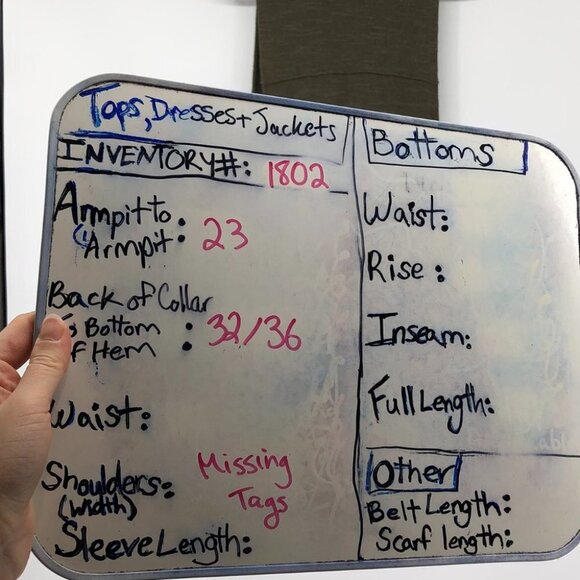 Tops, Dresses + Jackets
INVENTORY#: 1802
Armpit to
Armpit: 23
Back of Collar
Bottom : 32/36
Hem
Waist:
Shoulders: Missing
(width) Tags
Sleeve Length:
Bottoms
Waist:
Rise :
Inseam:
Full Length:
Other
Belt Length:
Scarf length: